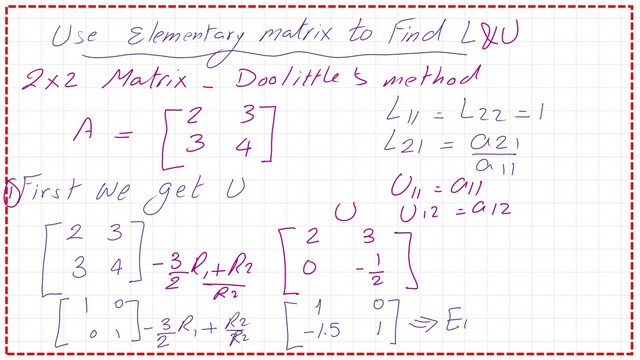 Use Elementary matrix to Find L&U
2x2 Matrix - Doolittle's method
A = [2 3
3 4]
L11 = L22 = 1
L21 = a21/a11
① First we get U
U11 = a11
U12 = a12
U
[2 3
3 4] -3/2 R1 + R2/R2 [2 3
0 -1/2]
[1 0
0 1] -3/2 R1 + R2/R2 [1 0
-1.5 1] ⇒ E1